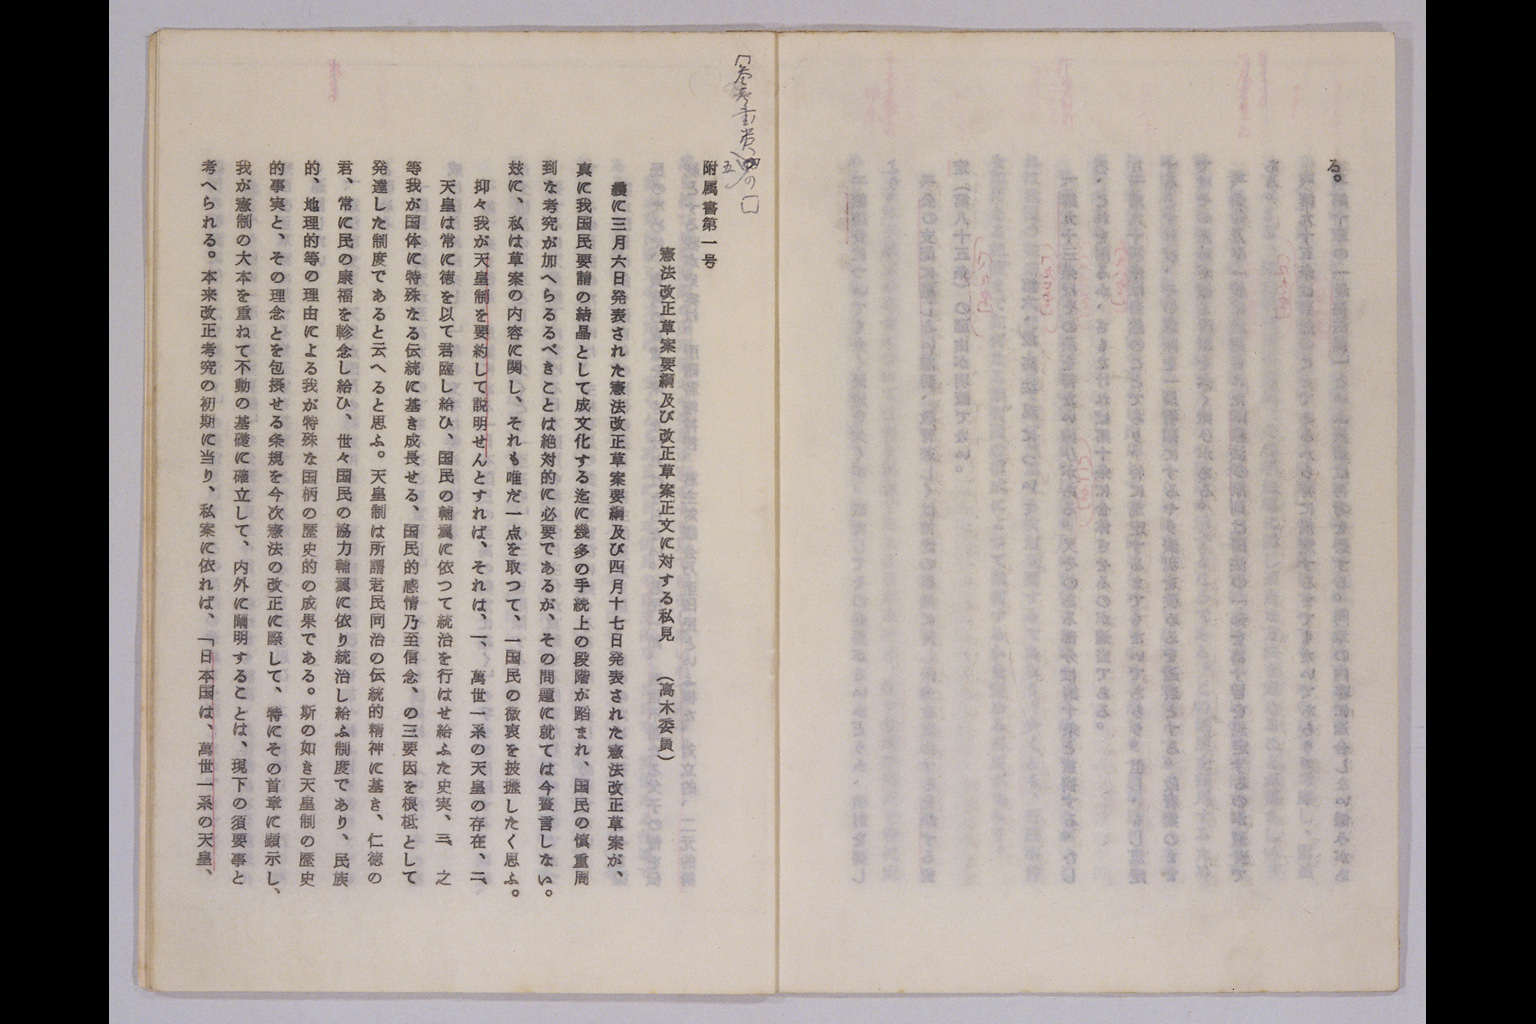 る。
附属書第一号
憲法改正草案要綱及び改正草案正文に対する私見　（高木委員）
曩に三月六日発表された憲法改正草案要綱及び四月十七日発表された憲法改正草案が、
真に我国民要請の結晶として成文化する迄に幾多の手続上の段階が踏まれ、国民の慎重周
到な考究が加へらるるべきことは絶対的に必要であるが、その問題に就ては今贅言しない。
玆に、私は草案の内容に関し、それも唯だ一点を取つて、一国民の微衷を披攊したく思ふ。
抑々我が天皇制を要約して説明せんとすれば、それは、一、萬世一系の天皇の存在、二、
天皇は常に徳を以て君臨し給ひ、国民の輔翼に依つて統治を行はせ給ふた史実、三、之
等我が国体に特殊なる伝統に基き成長せる、国民的感情乃至信念、の三要因を根柢として
発達した制度であると云へると思ふ。天皇制は所謂君民同治の伝統的精神に基き、仁徳の
君、常に民の康福を軫念し給ひ、世々国民の協力輔翼に依り統治し給ふ制度であり、民族
的、地理的等の理由による我が特殊な国柄の歴史的の成果である。斯の如き天皇制の歴史
的事実と、その理念とを包摂せる条規を今次憲法の改正に際して、特にその首章に顕示し、
我が憲制の大本を重ねて不動の基礎に確立して、内外に闡明することは、現下の須要事と
考へられる。本来改正考究の初期に当り、私案に依れば、「日本国は、萬世一系の天皇、